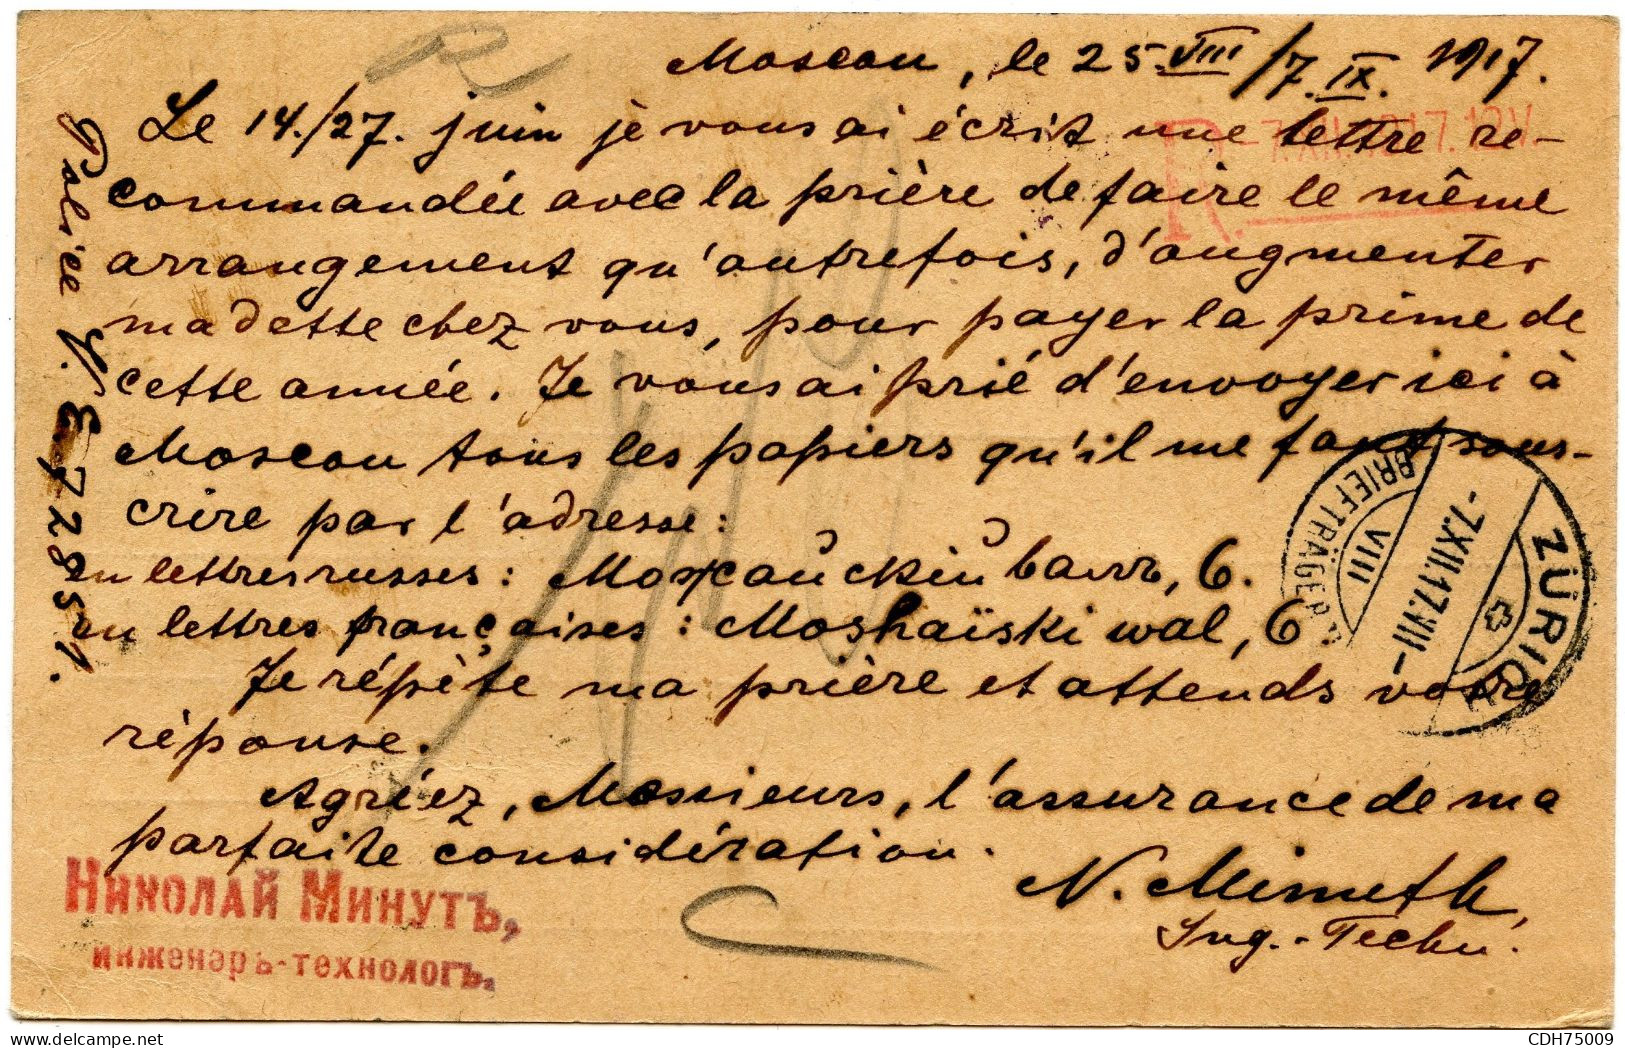 Moscou, le 25.VIII/7.IX. 1917.
Le 14./27. juin je vous ai écrit une lettre re-
commandée avec la prière de faire le même
arrangement qu'autrefois, d'augmenter
ma dette chez vous, pour payer la prime de
cette année. Je vous ai prié d'envoyer ici à
Moscou tous les papiers qu'il me faut sous-
crire par l'adresse:
en lettres russes: Можайскій валъ, 6.
en lettres françaises: Moshaïski wal, 6
Je répète ma prière et attends votre
réponse.
Agréez, Messieurs, l'assurance de ma
parfaite considération.
N. Minuth,
Ing.-Techn.
Police N. E 72851.
НИКОЛАЙ МИНУТЪ,
инженеръ-технологъ.
R.
ZÜRICH
-7.XII.17.VII-
VIII
BRIEFTRÄGER
CDH75009